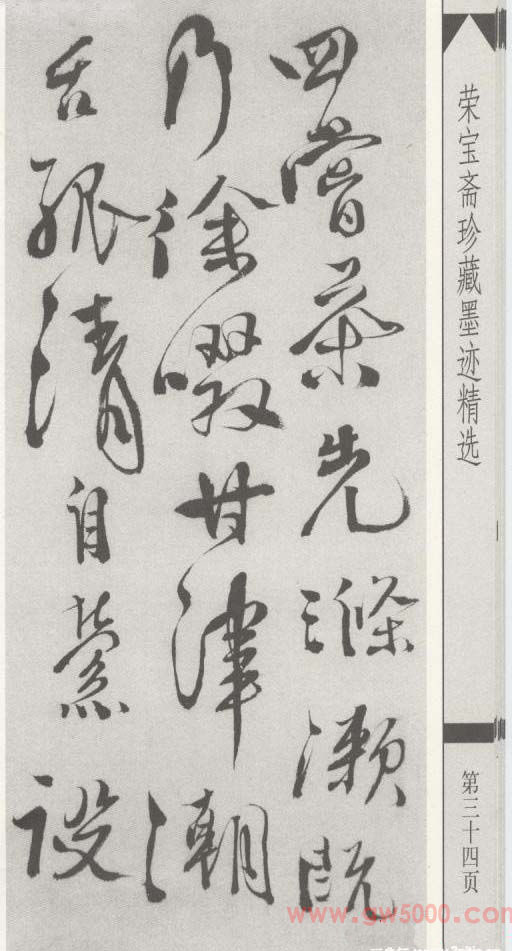 荣宝斋珍藏墨迹精选
第三十四页
四嘗茶先滌瀨既
乃徐啜甘津潮
舌孤清自縈設
www.gw5000.com